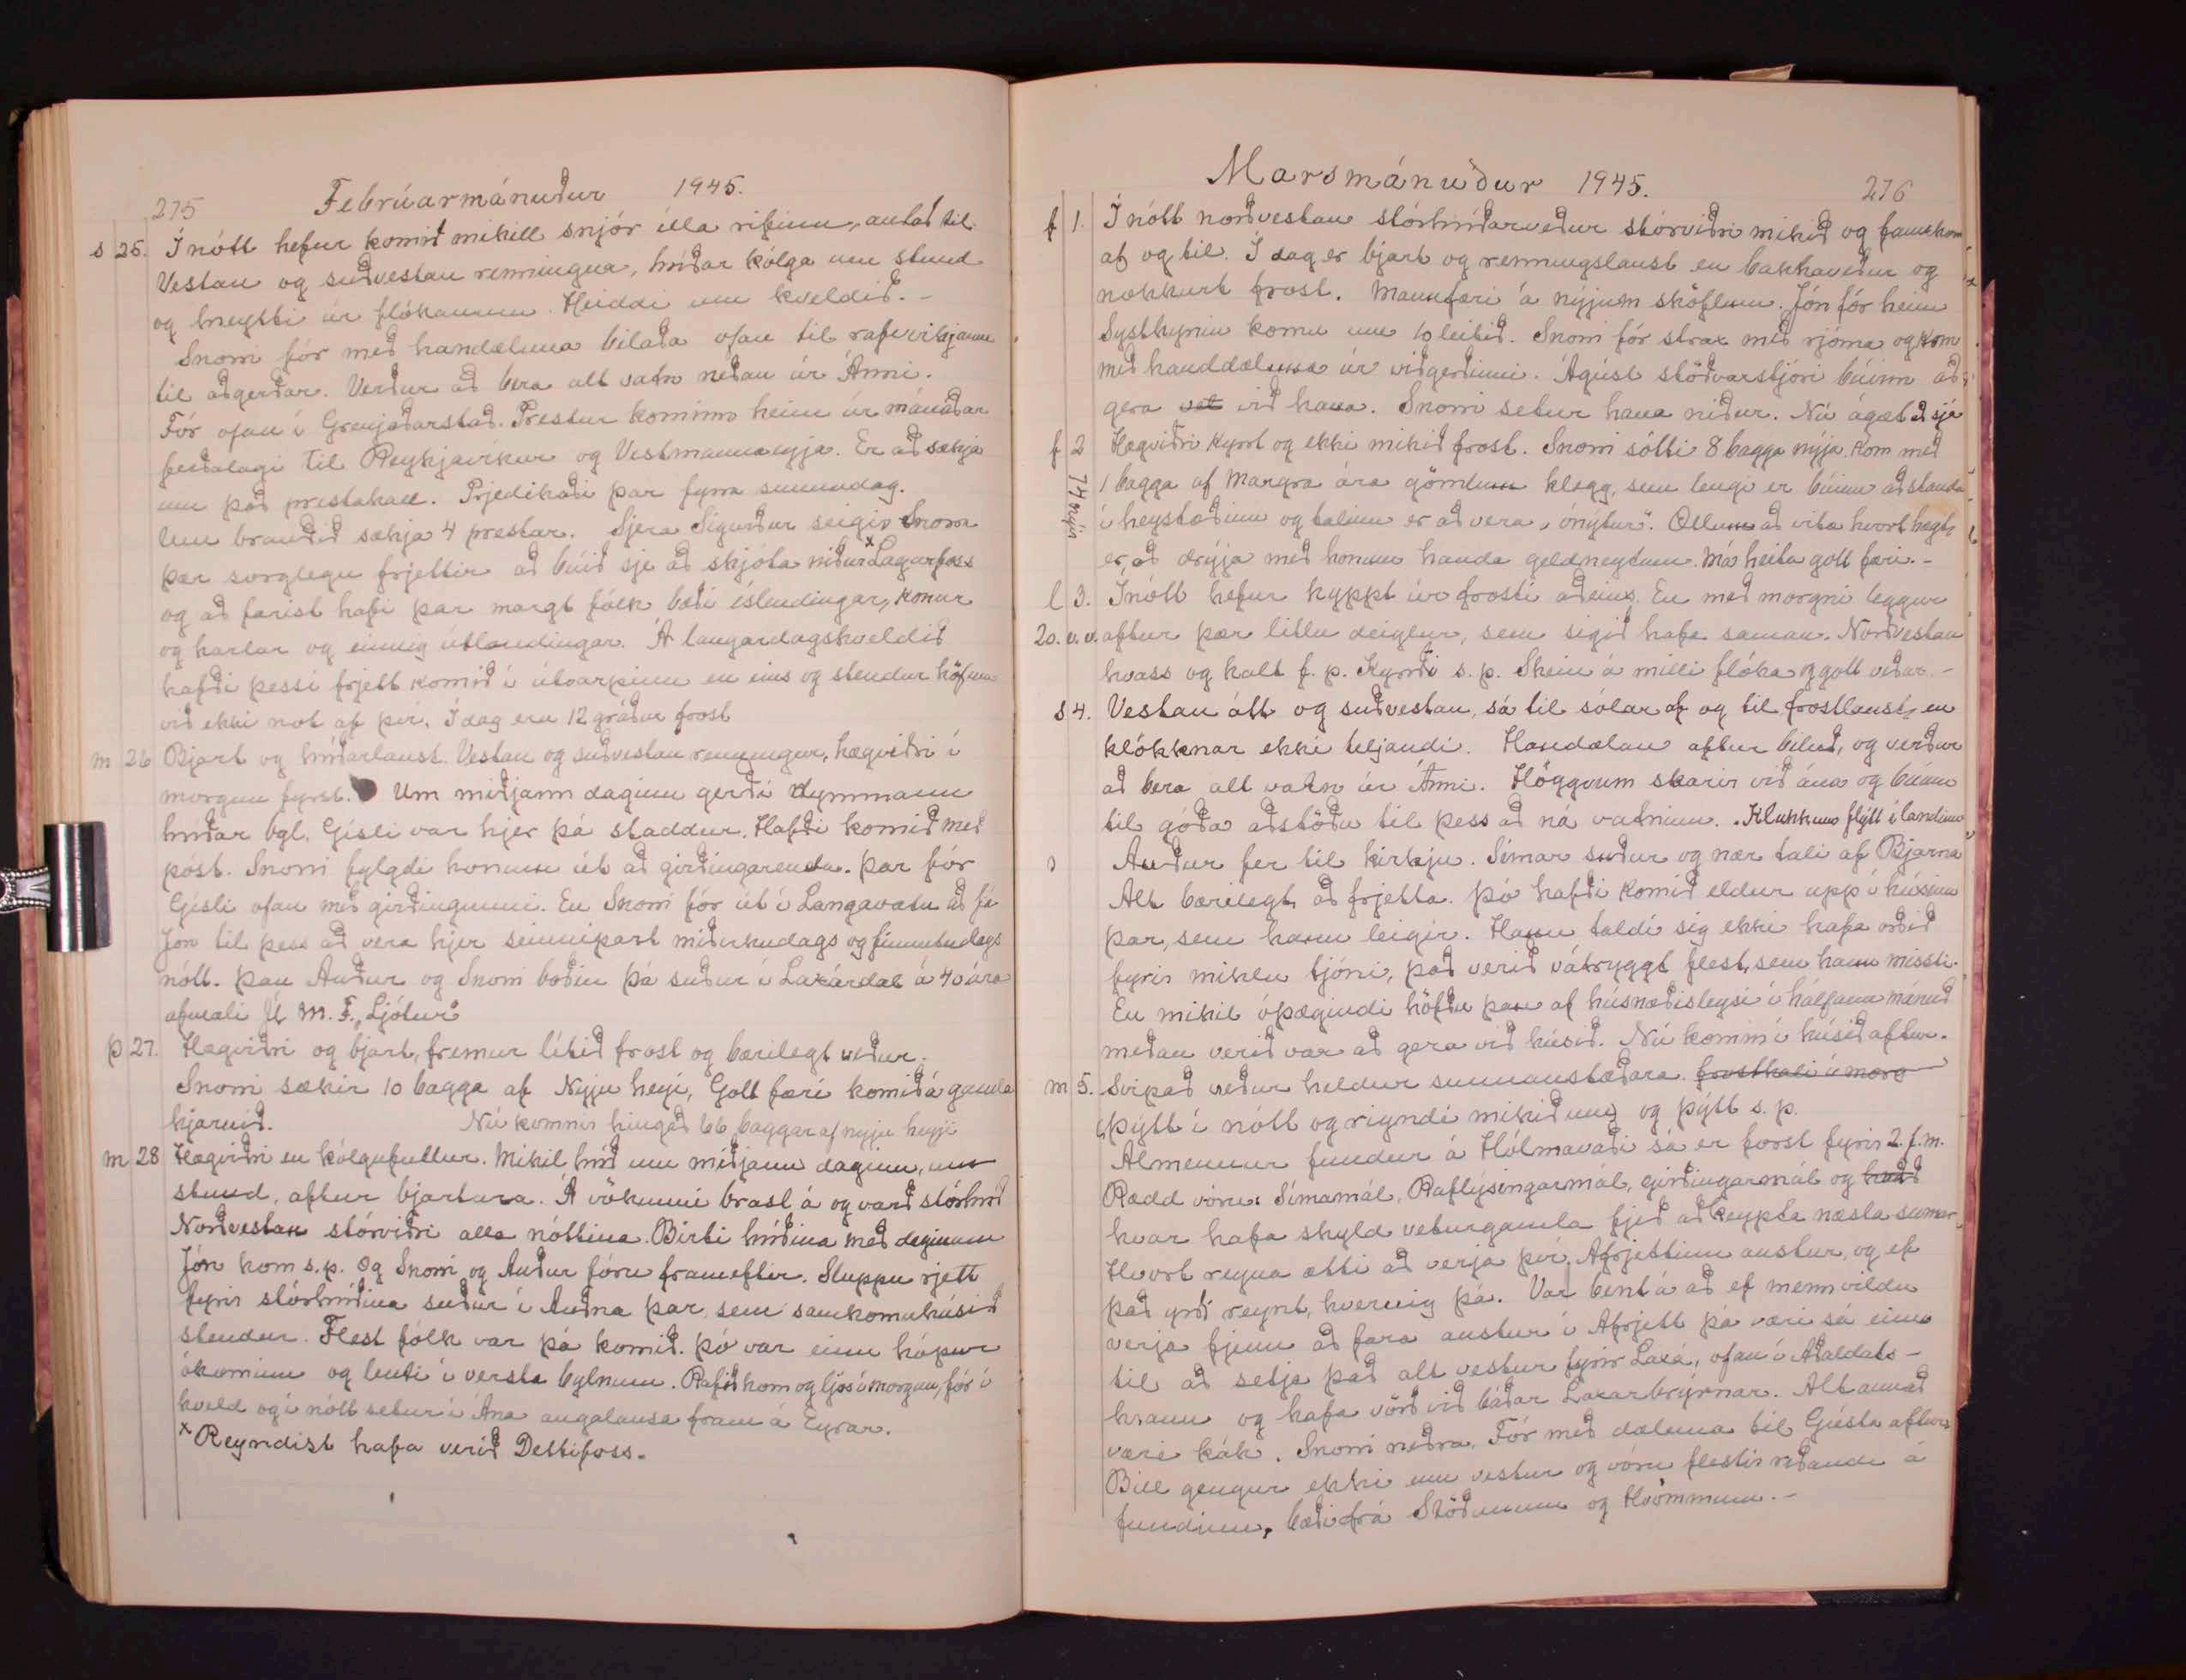 275 Febrúarmánuður 1945.
s 25. Í nótt hefur komið mikill snjór illa rifinn, til
Vestan og suðvestan renningna, hríðar kólga um stund
og hreytti úr flókanum. Heiddi um kveldið. -
Snorri fór með handæluna bilaða ofan til rafvirkjanna
til aðgerðar. Verður að bera alt vatn neðan úr Ánni.
Fór ofan í Grenjaðarstað. Prestur kominn heim úr mánaðar
ferðalagi til Reykjavíkur og Vestmannaeyja. Er að sækja
um það prestakall. Prjedikaði þar fyrra sunnudag.
Um brauðið sækja 4 prestar. Sjera Sigurður seigir Snorra
þær sorglegu frjettir að búið sje að skjóta niður x Lagarfoss
og að farist hafi þar margt fólk bæði íslendingar, konur
og karlar og einnig útlendingar. Á laugardagskveldið
hafði þessi frjett komið í útvarpinu en eins og stendur höfum
við ekki not af því. Í dag era 12 gráður frost
m 26 Bjart og hríðarlaust. Vestan og suðvestan renningur, hægviðri í
morgun fyrst. Um miðjann daginn gerði dymmann
hríðar byl. Gísli var hjer þá staddur. Hafði komið með
póst. Snorri fylgdi honum út að girðingarenda. Þar fór
Gísli ofan með girðingunni. En Snorri fór út í Langavatn að fá
Jón til þess að vera hjer seinnipart miðvikudags og fimmtudags
nótt. Þau Auður og Snorri boðin þá suður í Laxárdal á 40 ára
afmæli M. F. "Ljótur"
þ 27. Hægviðri og bjart, fremur lítið frost og bærilegt veður.
Snorri sækir 10 bagga af Nyju heyi, Gott færi komið á gamla
hjarnið. Nú komnir hingað 66 baggar af nyju heyji
m 28 Hægviðri en kólgufullur. Mikil hríð um miðjann daginn, um
stund, aftur bjartara. Á vökunni brast á og varð stórhríð
Norðvestan stórviðri alla nóttina. Birti hríðina með deginum
Jón kom s.p. Og Snorri og Auður fóru frameftir. Sluppu rjett
fyrir stórhríðina suður í Auðna þar, sem samkomuhúsið
stendur. Flest fólk var þá komið. Þó var einn hópur
ókominn og lenti í versta bylnum. Rafið kom og ljós í morgun, fór í
kveld og í nótt setur í Ána augalausa fram á Eyrar.
x Reyndist hafa verið Dettifoss.
Marsmánuður 1945. 276
f 1. Í nótt norðvestan stórhríðarveður stórviðri mikið og fannkom
af og til. Í dag er bjart og renningslaust en bakkaveður og
nokkurt frost. Mannfæri á nýjum sköflum. Jón fór heim
Systkynin komu um 10 leitið. Snorri fór strax með rjóma og kom
með handdæluna úr viðgerðinni. Ágúst stöðvarstjóri búinn að
gera vel við hana. Snorri setur hana niður. Nú ágæt að sjá
f 2 Hægviðri kyrt og ekki mikið frost. Snorri sótti 8 bagga nýja. Kom með
74 nýir 1 bagga af Margra ára gömlum klegg, sem lengi er búinn að standa
í heystæðinu og talinn er að vera „ónýtur". Ætlum að vita hvort hægt
er, að drýja með honum handa geldneytum. Má heita gott færi. -
l 3. Í nótt hefur kyppt úr frosti aðeins. En með morgni leggur
20. v.v. aftur þær litlu deiglur, sem sigið hafa saman. Norðvestan
hvass og kalt f.p. Kyrrði s.p. Skein á milli flóka og gott veður. -
s 4. Vestan átt og suðvestan, sá til sólar af og til frostlaust, en
klökknar ekki teljandi. Handælan aftur biluð, og verður
að bera alt vatn úr Ánni. Höggvum skarir við ána og búum
til góða aðstöðu til þess að ná vatninu. Klukkum flýtt í landinu
Auður fer til kirkju. Símar suður og nær tali af Bjarna
Alt bærilegt, að frjetta. Þó hafði komið eldur upp í húsinu
þar, sem hann leigir. Hann taldi sig ekki hafa orðið
fyrir miklu tjóni, það verið vátryggt flest, sem hann missti.
En mikil óþægindi höfðu þau af húsnæðisleysi í hálfann mánuð
meðan verið var að gera við húsið. Nú kominn í húsið aftur.
m 5. Svipað veður heldur sunnanstæðara. frostkali í morg
Þýtt í nótt og rigndi mikið um og þýtt s.p.
Almennur fundur á Hólmavaði sá er forst fyrir 2. f.m.
Rædd vóru: Símamál, Raflýsingarmál, girðingarmál og hvað
hvar hafa skyld veturgamla fjeð að keypta næsta sumar.
Hvort reyna ætti að verja því Afrjettinn austur, og ef
það yrði reynt, hvernig þá. Var bent á að ef menn vildu
verja fjenu að fara austur í Afrjett þá væri sá einn
til að setja það alt vestur fyrir Laxá, ofan í Aðaldals-
hraun og hafa vörð við báðar Laxarbrýrnar. Alt annað
væri kák. Snorri neðra. Fór með dæluna til Gústa aftur
Bíll gengur ekki um vestur og vóru flestir ríðandi á
fundinn, bæði frá Stöðunum og Hvömmum. -